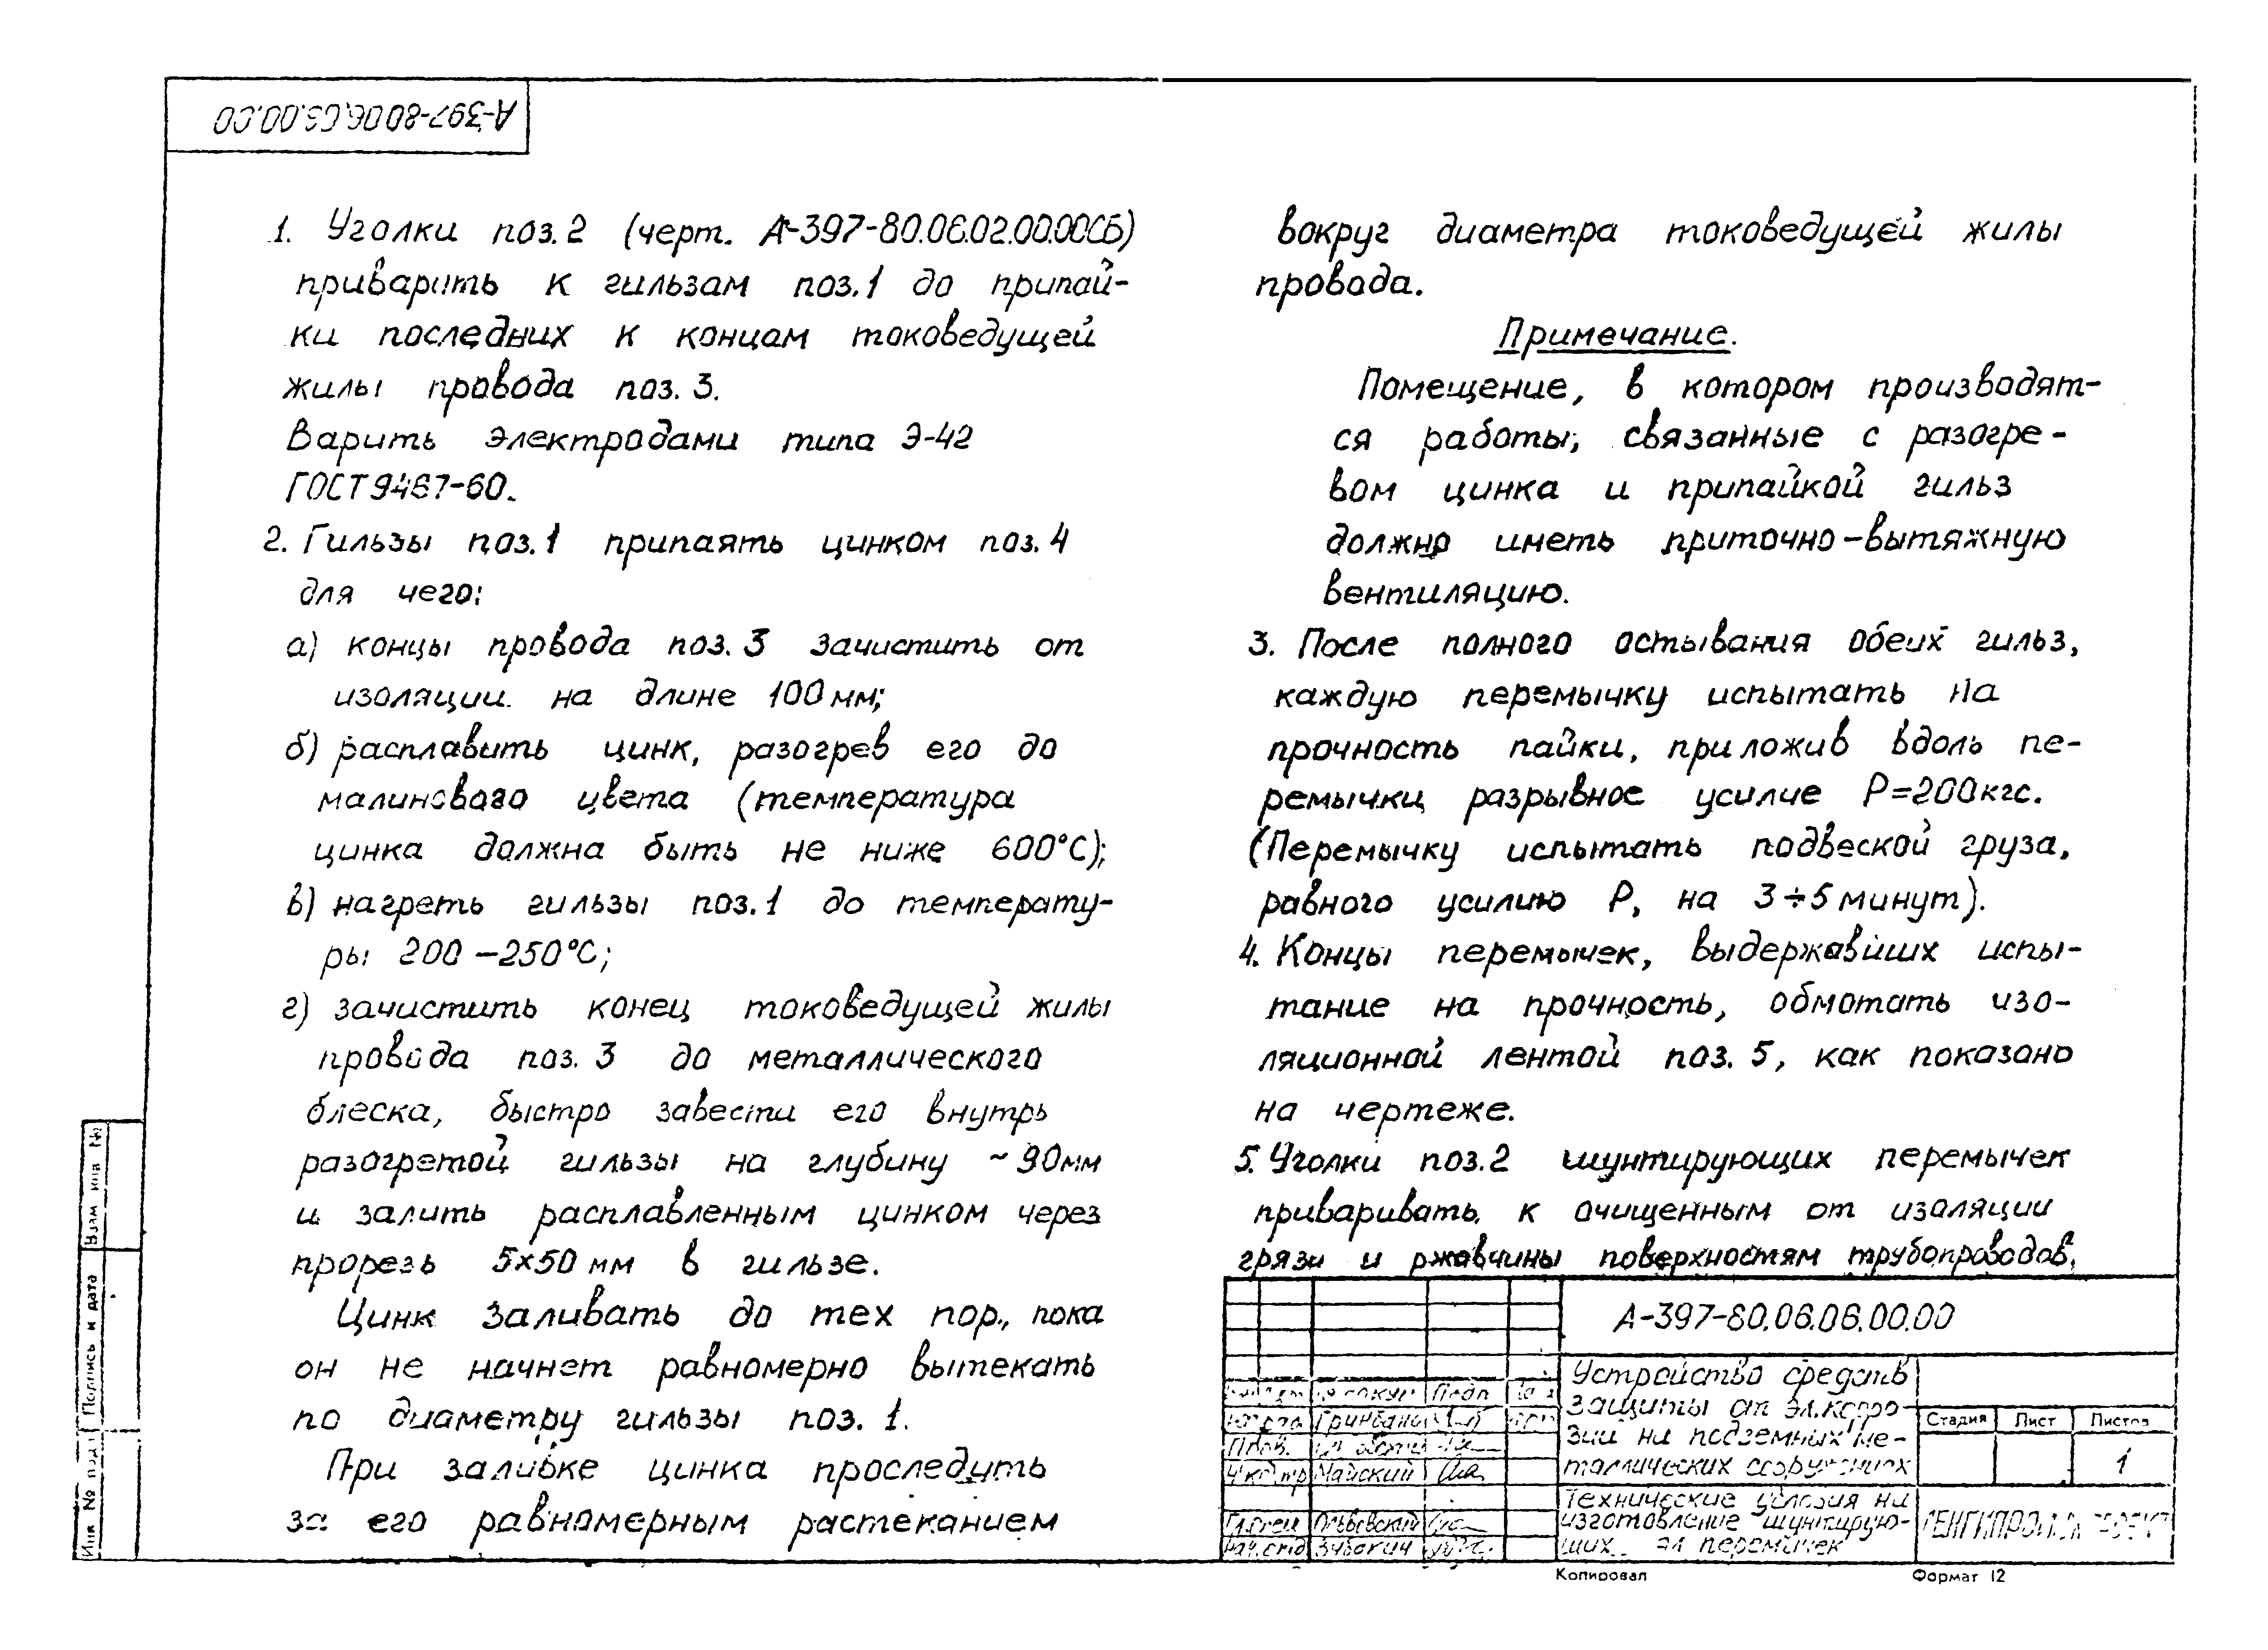 А-397-80.06.06.00.00
1. Уголки поз.2 (черт. А-397-80.06.02.00.00СБ)
приварить к гильзам поз.1 до припай-
ки последних к концам токоведущей
жилы провода поз. 3.
Варить электродами типа Э-42
ГОСТ 9467-60.
2. Гильзы поз.1 припаять цинком поз.4
для чего:
а) концы провода поз. 3 зачистить от
изоляции на длине 100 мм;
б) расплавить цинк, разогрев его до
малинового цвета (температура
цинка должна быть не ниже 600°С);
в) нагреть гильзы поз.1 до температу-
ры 200 – 250°С;
г) зачистить конец токоведущей жилы
провода поз. 3 до металлического
блеска, быстро завести его внутрь
разогретой гильзы на глубину ~ 90мм
и залить расплавленным цинком через
прорезь 5х50 мм в гильзе.
Цинк заливать до тех пор, пока
он не начнет равномерно вытекать
по диаметру гильзы поз. 1.
При заливке цинка проследить
за его равномерным растеканием
вокруг диаметра токоведущей жилы
провода.
Примечание.
Помещение, в котором производят-
ся работы, связанные с разогре-
вом цинка и припайкой гильз
должно иметь приточно-вытяжную
вентиляцию.
3. После полного остывания обеих гильз,
каждую перемычку испытать на
прочность пайки, приложив вдоль пе-
ремычки разрывное усилие Р=200кгс.
(Перемычку испытать подвеской груза,
равного усилию Р, на 3÷5 минут).
4. Концы перемычек, выдержавших испы-
тание на прочность, обмотать изо-
ляционной лентой поз. 5, как показано
на чертеже.
5. Уголки поз.2 шунтирующих перемычек
приваривать к очищенным от изоляции
грязи и ржавчины поверхностям трубопроводов.
А-397-80.06.06.00.00
Устройство средств
защиты от эл.корро-
зии на подземных ме-
таллических сооружениях
Стадия Лист Листов
1
Технические условия на
изготовление шунтирую-
щих эл перемычек
Пров.
Н.контр Майский
Копировал Формат 12
Взам инв №
Подпись и дата
Инв № подл